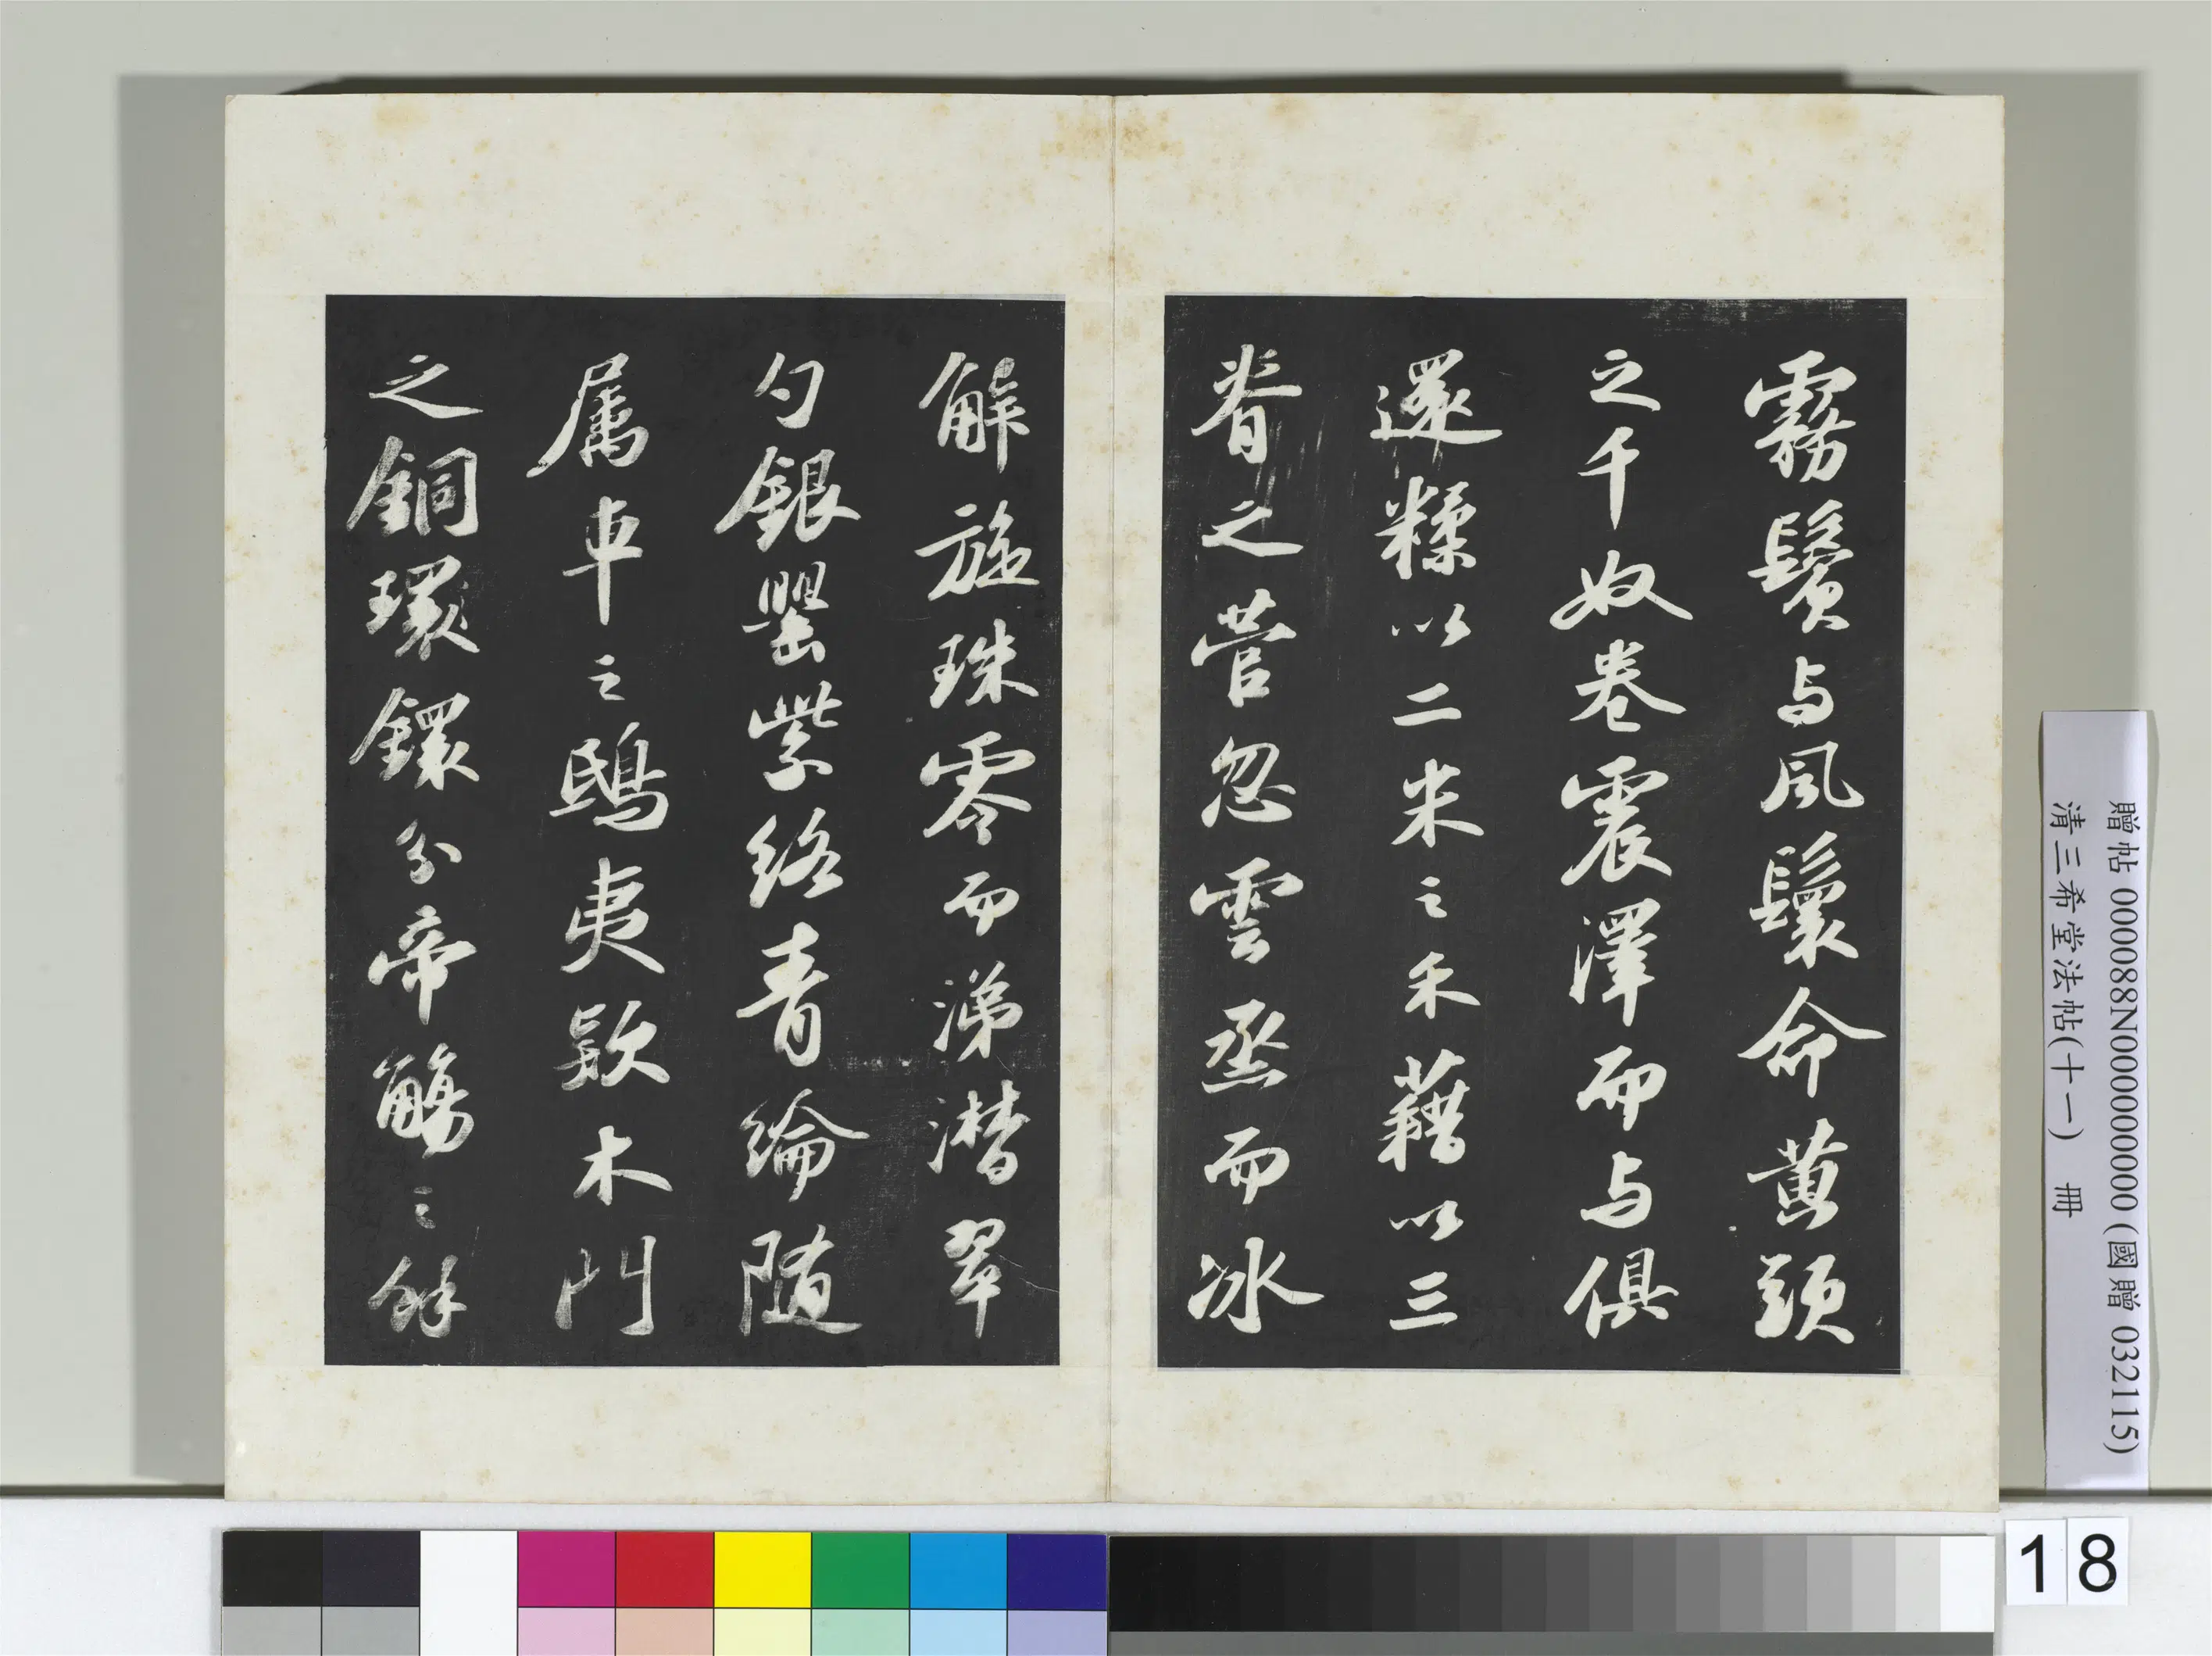 霧鬢与風鬟命黃頭
之千奴卷震澤而与俱
還糅以二米之禾藉以三
脊之菅忽雲烝而冰
解旋珠零而涕潸翠
勺銀罌紫絡青綸隨
属車之鴟夷款木門
之銅環鐶分帝觴之餘
贈帖 000088N000000000 (國贈 032115)
清三希堂法帖(十一) 冊
18